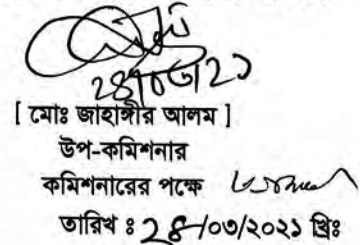 ২৪/০৩/২১
[ মোঃ জাহাঙ্গীর আলম ]
উপ-কমিশনার
কমিশনারের পক্ষে
তারিখ ঃ ২৪/০৩/২০২১ খ্রিঃ